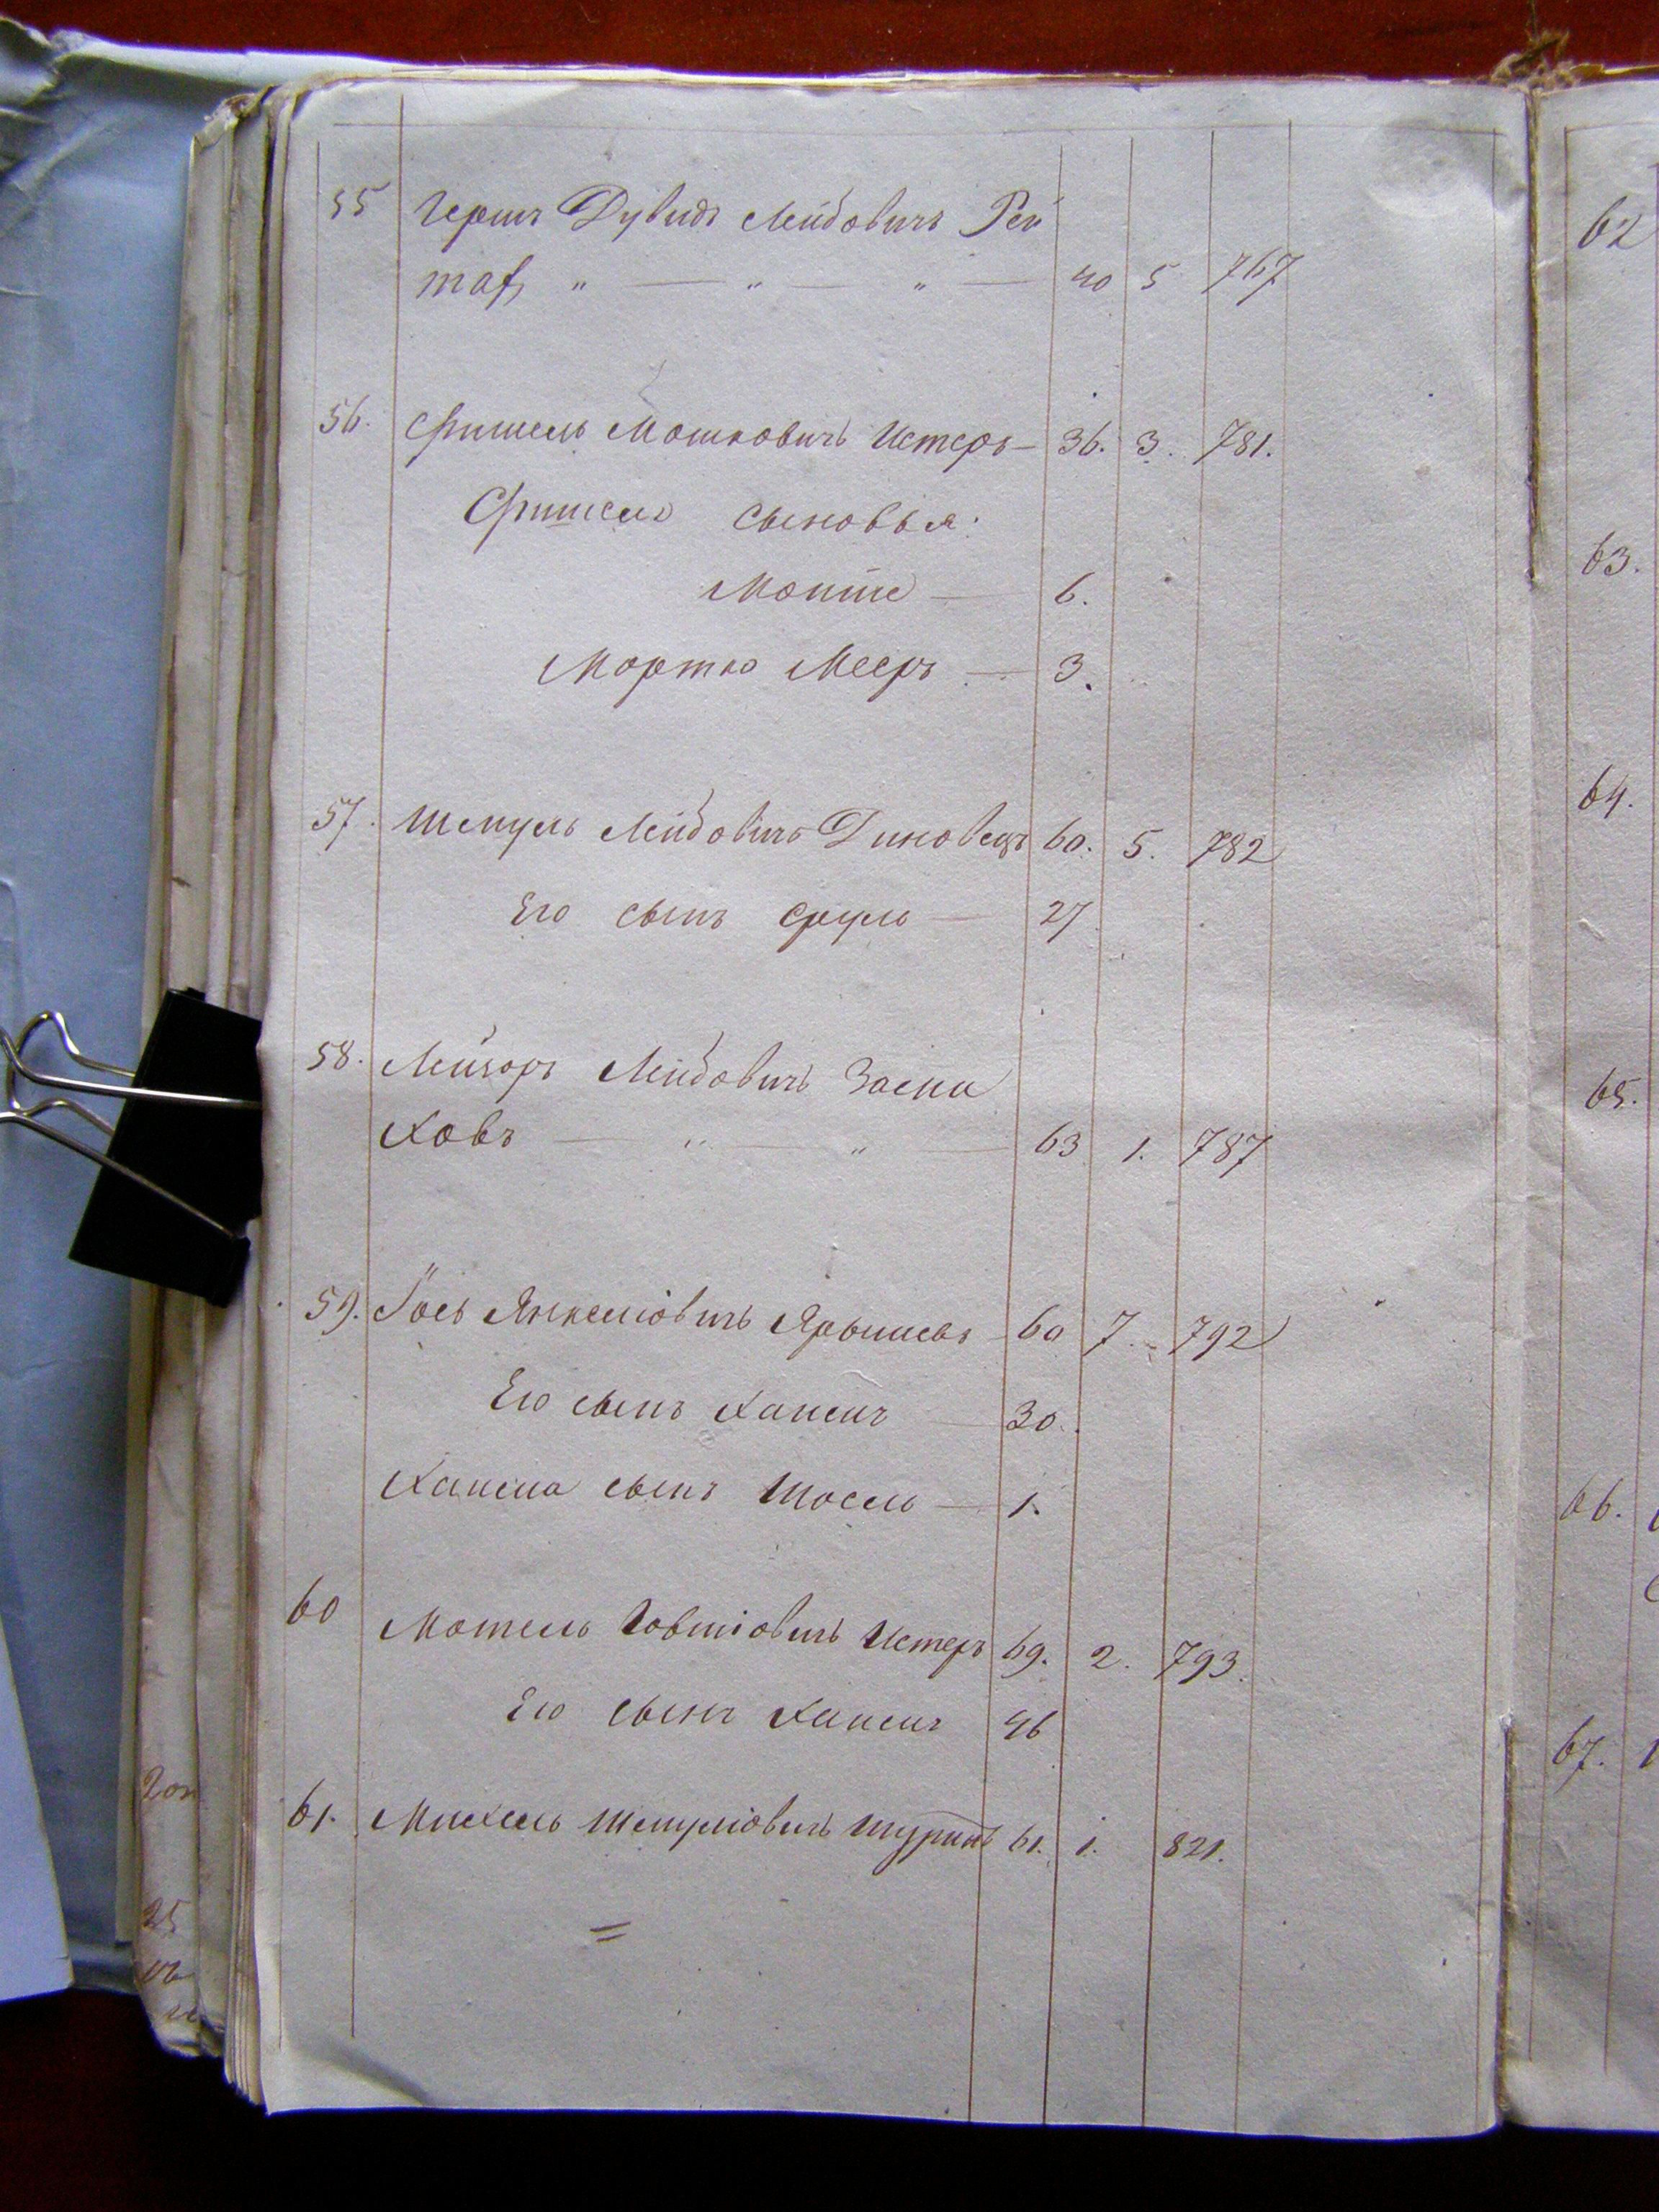 55 Герш Дувидъ Лейбовичъ Рей
таф „ — „ — „ — 40 5 767
56. Фишель Мошковичъ Истеръ — 36. 3. 781.
Фишеля сыновья:
— 6.
Мортко Мееръ — 3.
57. Шмуль Лейбовичъ Диновецъ 60. 5. 782
Его сынъ Сруль — 27
58. Лейзоръ Лейбовичъ Засла
ховъ — „ — „ — 63 1. 787
59. Іось Янкеліовичъ Ярышевъ 60 7. 792
Его сынъ Хаимъ — 30.
Хаима сынъ Іосель — 1.
60 Мотель Іовшіовичъ Истеръ 69. 2. 793.
Его сынъ Хаимъ 46
61. Михель Шмуліовичъ 61. 1. 821.
=
62
63.
64.
65.
66.
67.
25